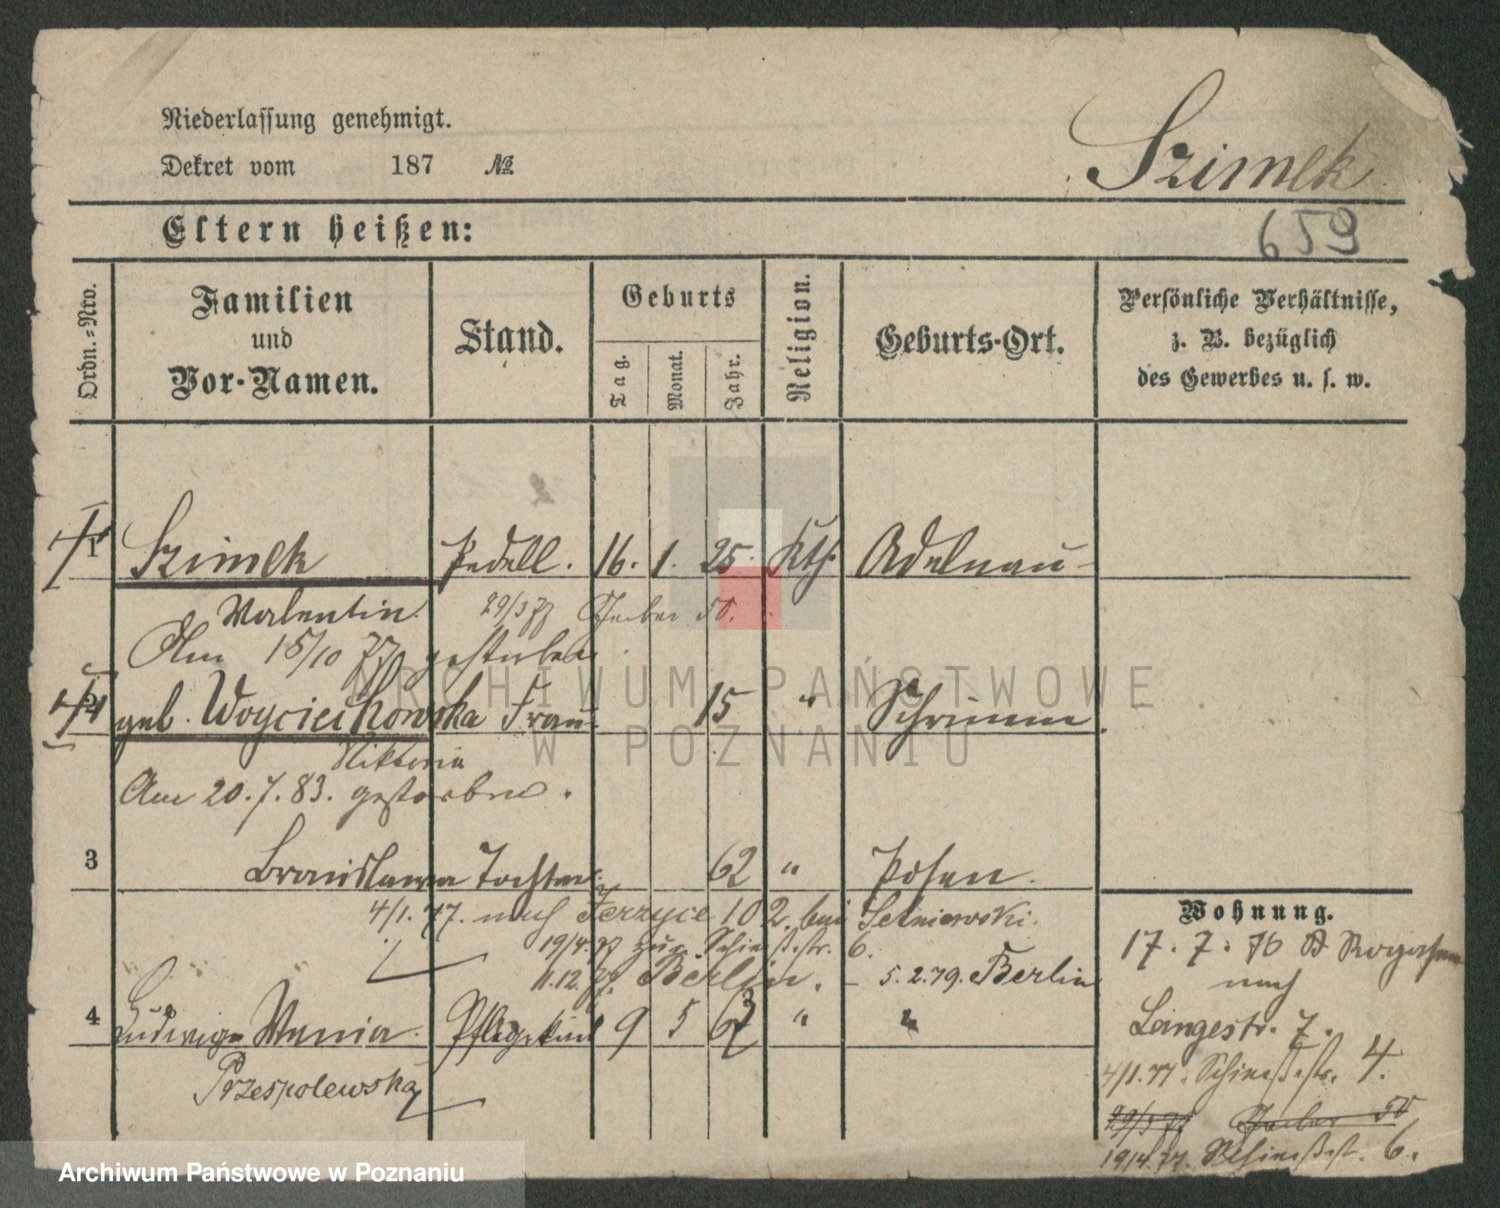 Niederlassung genehmigt.
Dekret vom 187 No.
Szimek
Eltern heißen:
659
Ordn.=Nro.
Familien und Vor-Namen.
Stand.
Geburts
Tag. Monat. Jahr.
Religion.
Geburts-Ort.
Persönliche Verhältnisse,
z. B. bezüglich
des Gewerbes u. s. w.
1 Szimek Pedell. 16. 1. 25. Kth. Adelnau
Valentin. 29/3 77 50.
Am 15/10 77 gestorben
2 geb. Woyciechowska Frau 15 " Schrimm
Viktoria
Am 20.7.83. gestorben.
3 Bronislawa Tochter 62 " Posen.
4/1. 77. nach Jerzyce 102. bei
19/4 77 6.
11.12.77. Berlin. – 5.2.79. Berlin
4 Ludwiga Wania Pflegekind 9 5 67 " "
Przespolewska
Wohnung.
17. 7. 76
nach
Langestr. 7.
4/1. 77. 4.
29/3 77 50
19/4. 77. 6.
ARCHIWUM PAŃSTWOWE
W POZNANIU
Archiwum Państwowe w Poznaniu